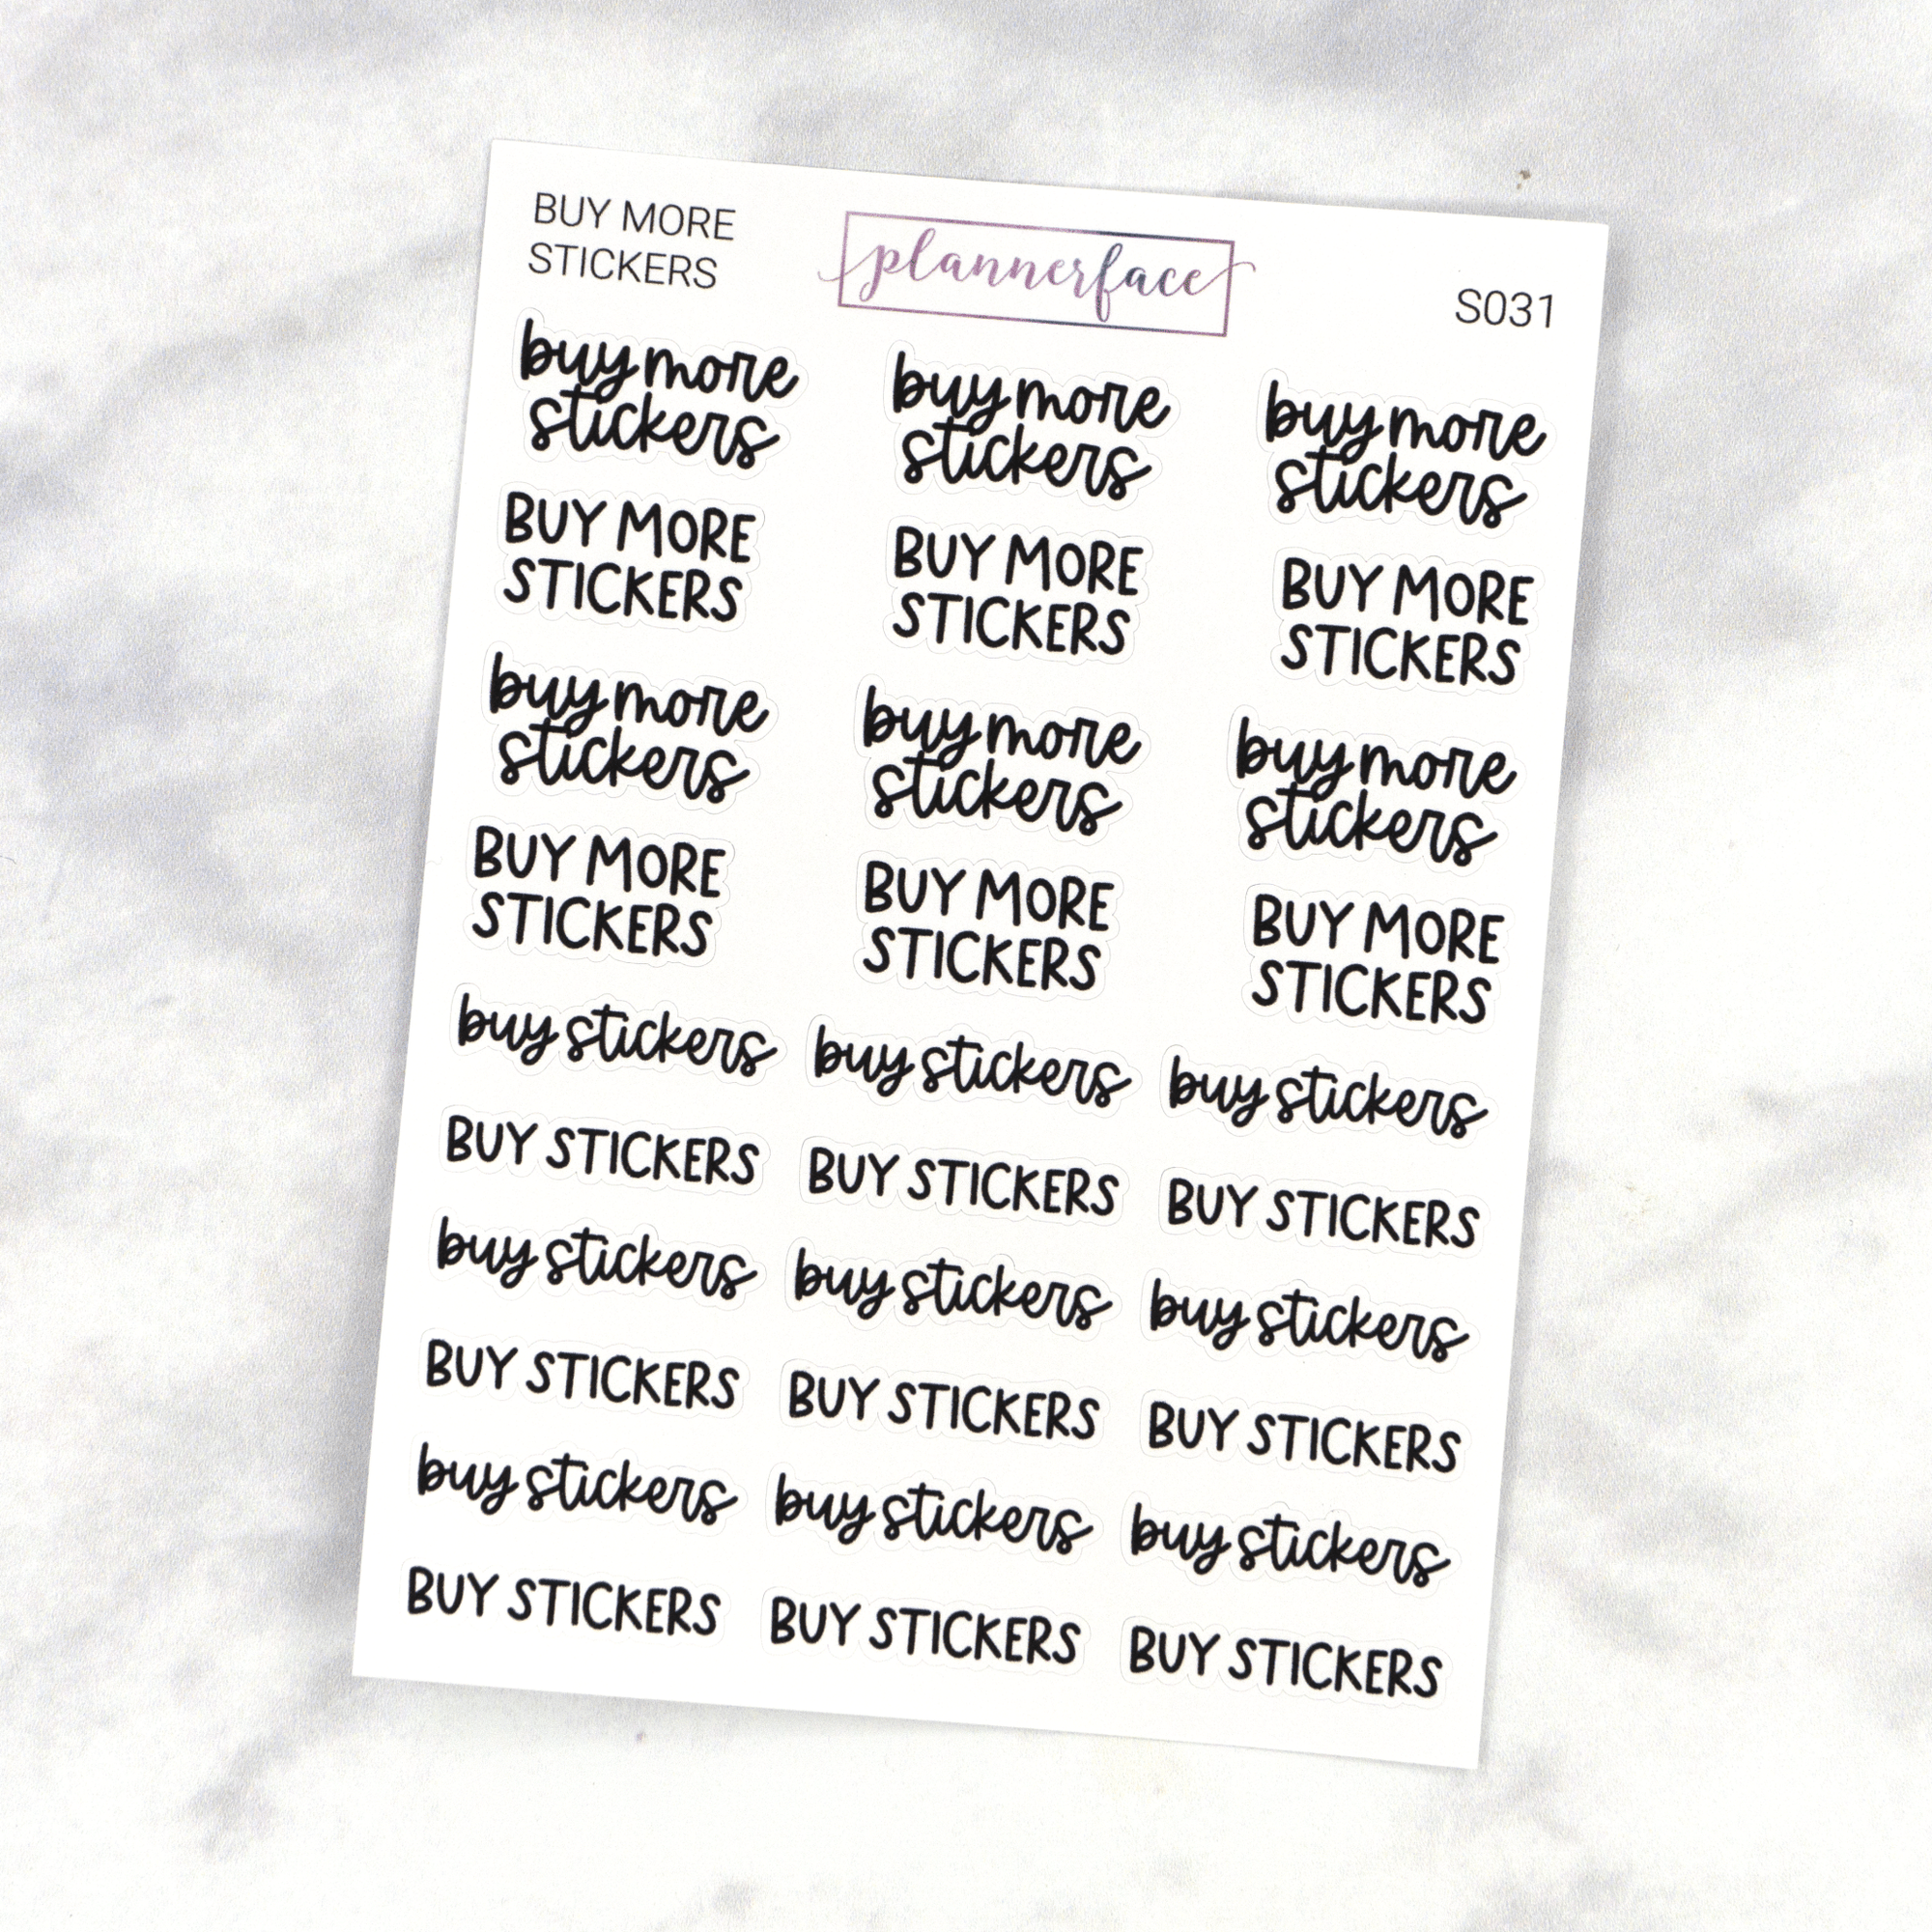 BUY MORE
STICKERS
plannerface
S031
buy more
stickers
buy more
stickers
buy more
stickers
BUY MORE
STICKERS
BUY MORE
STICKERS
BUY MORE
STICKERS
buy more
stickers
buy more
stickers
buy more
stickers
BUY MORE
STICKERS
BUY MORE
STICKERS
BUY MORE
STICKERS
buy stickers
buy stickers
buy stickers
BUY STICKERS
BUY STICKERS
BUY STICKERS
buy stickers
buy stickers
buy stickers
BUY STICKERS
BUY STICKERS
BUY STICKERS
buy stickers
buy stickers
buy stickers
BUY STICKERS
BUY STICKERS
BUY STICKERS